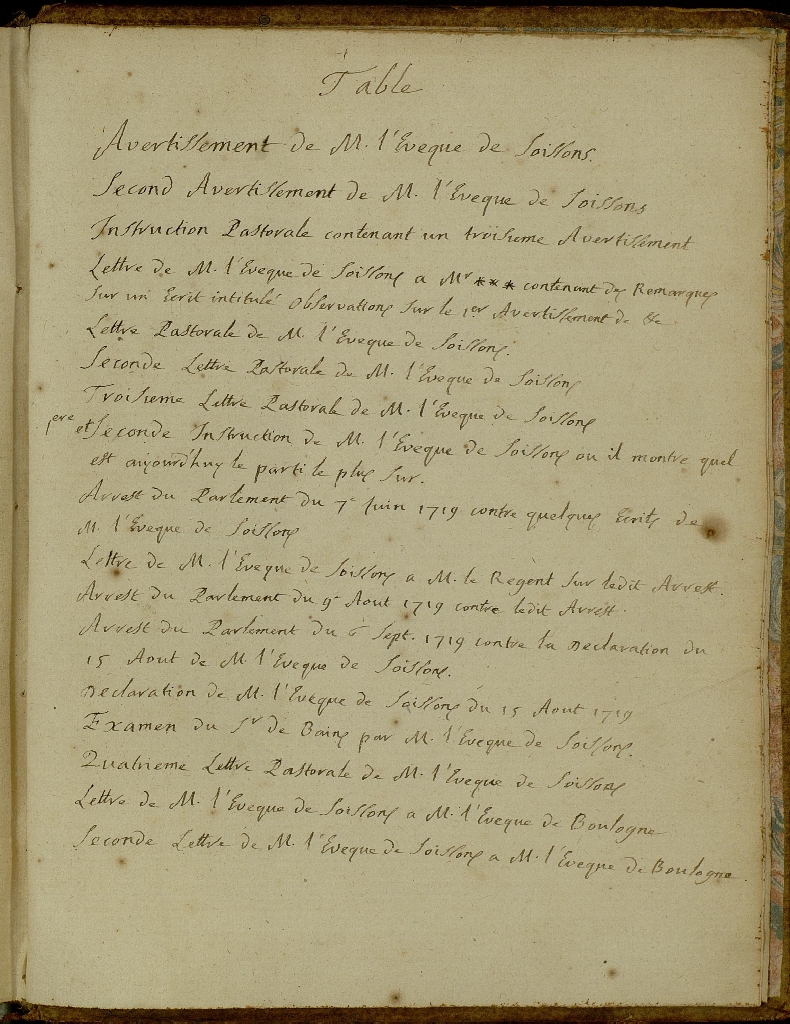 Table
Avertissement de M. l'Eveque de Soissons.
Second Avertissement de M. l'Eveque de Soissons
Instruction Pastorale contenant un troisieme Avertissement
Lettre de M. l'Eveque de Soissons a Mr *** contenant des Remarques
sur un Ecrit intitulé Observations sur le 1er Avertissement de &c
Lettre Pastorale de M. l'Eveque de Soissons.
Seconde Lettre Pastorale de M. l'Eveque de Soissons
Troisieme Lettre Pastorale de M. l'Eveque de Soissons
pere et Seconde Instruction de M. l'Eveque de Soissons ou il montre quel
est aujourd'huy le parti le plus sur.
Arrest du Parlement du 7e Juin 1719 contre quelques Ecrits de
M. l'Eveque de Soissons
Lettre de M. l'Eveque de Soissons a M. le Regent sur ledit Arrest.
Arrest du Parlement du 9e Aout 1719 contre ledit Arrest.
Arrest du Parlement du 6 Sept. 1719 contre la Declaration du
15 Aout de M. l'Eveque de Soissons.
Declaration de M. l'Eveque de Soissons du 15 Aout 1719
Examen du Sr de Bains par M. l'Eveque de Soissons.
Quatrieme Lettre Pastorale de M. l'Eveque de Soissons
Lettre de M. l'Eveque de Soissons a M. l'Eveque de Boulogne
Seconde Lettre de M. l'Eveque de Soissons a M. l'Eveque de Boulogne